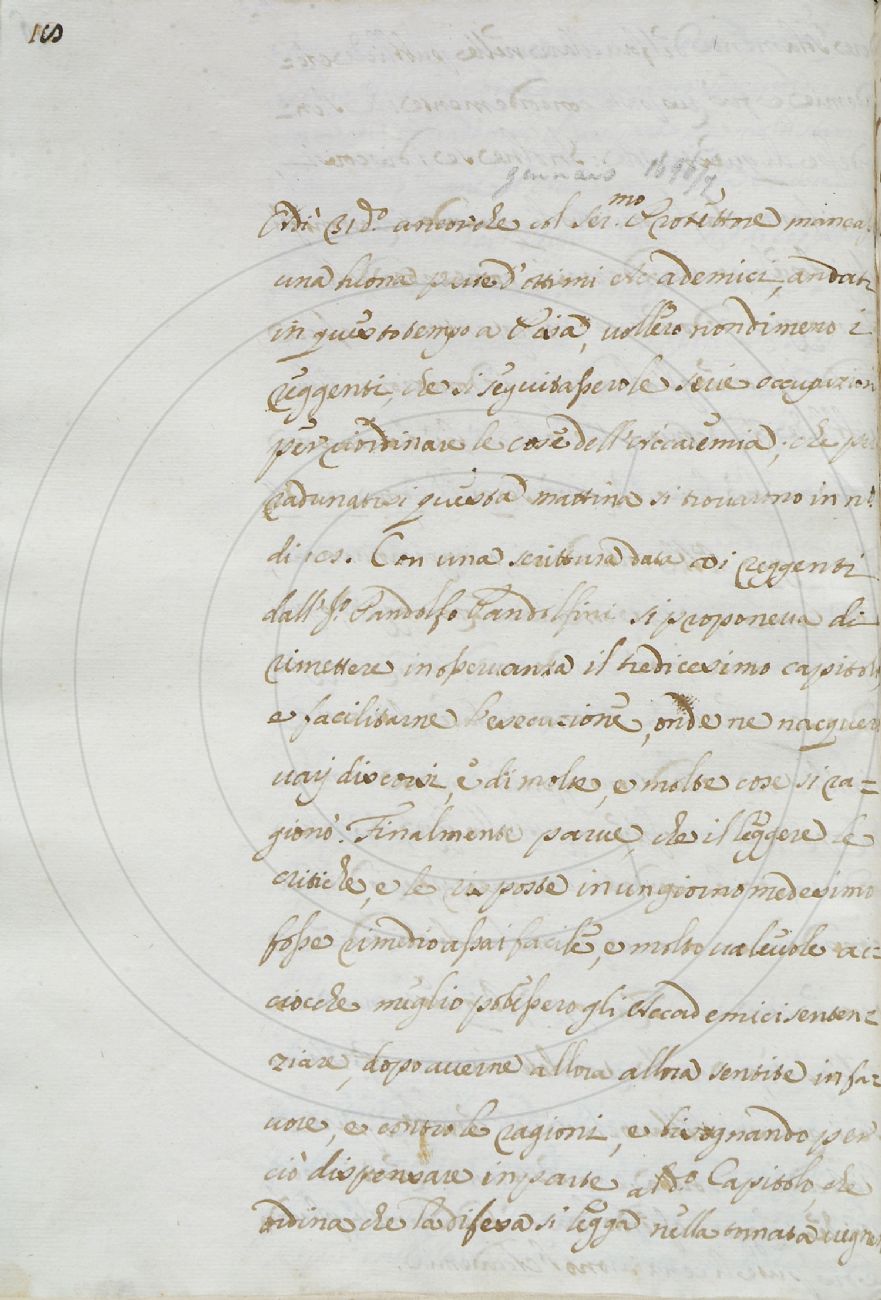 118
gennaio 1698/9
Adì 31 d.º ancorche col Ser.mo Protettore manca
una buona parte d'ottimi Accademici, andati
in questo tempo a Pisa, vollero nondimeno i
Reggenti, che si seguitassero le serie occupazion
per riordinare le cose dell'Accademia, che per
radunatisi questa mattina si trovarono in n.º
di 10. Con una scrittura data ai Reggenti
dall' S.r Pandolfo Pandolfini si proponeva di
rimettere in osservanza il tredicesimo capitolo,
e facilitarne l'esecuzione, onde ne nacquero
varj discorsi, e di molte, e molte cose si ra=
gionò. Finalmente parve, che il leggere le
critiche, e le risposte in un giorno medesimo
fosse rimedio assai facile, e molto valevole ac=
ciocche meglio potessero gli Accademici senten=
ziare, dopo averne allora allora sentite in fa=
vore, e contro le ragioni, e bisognando per
ciò dispensare in parte al d.º Capitolo che
ordina che la difesa si legga nella tornata